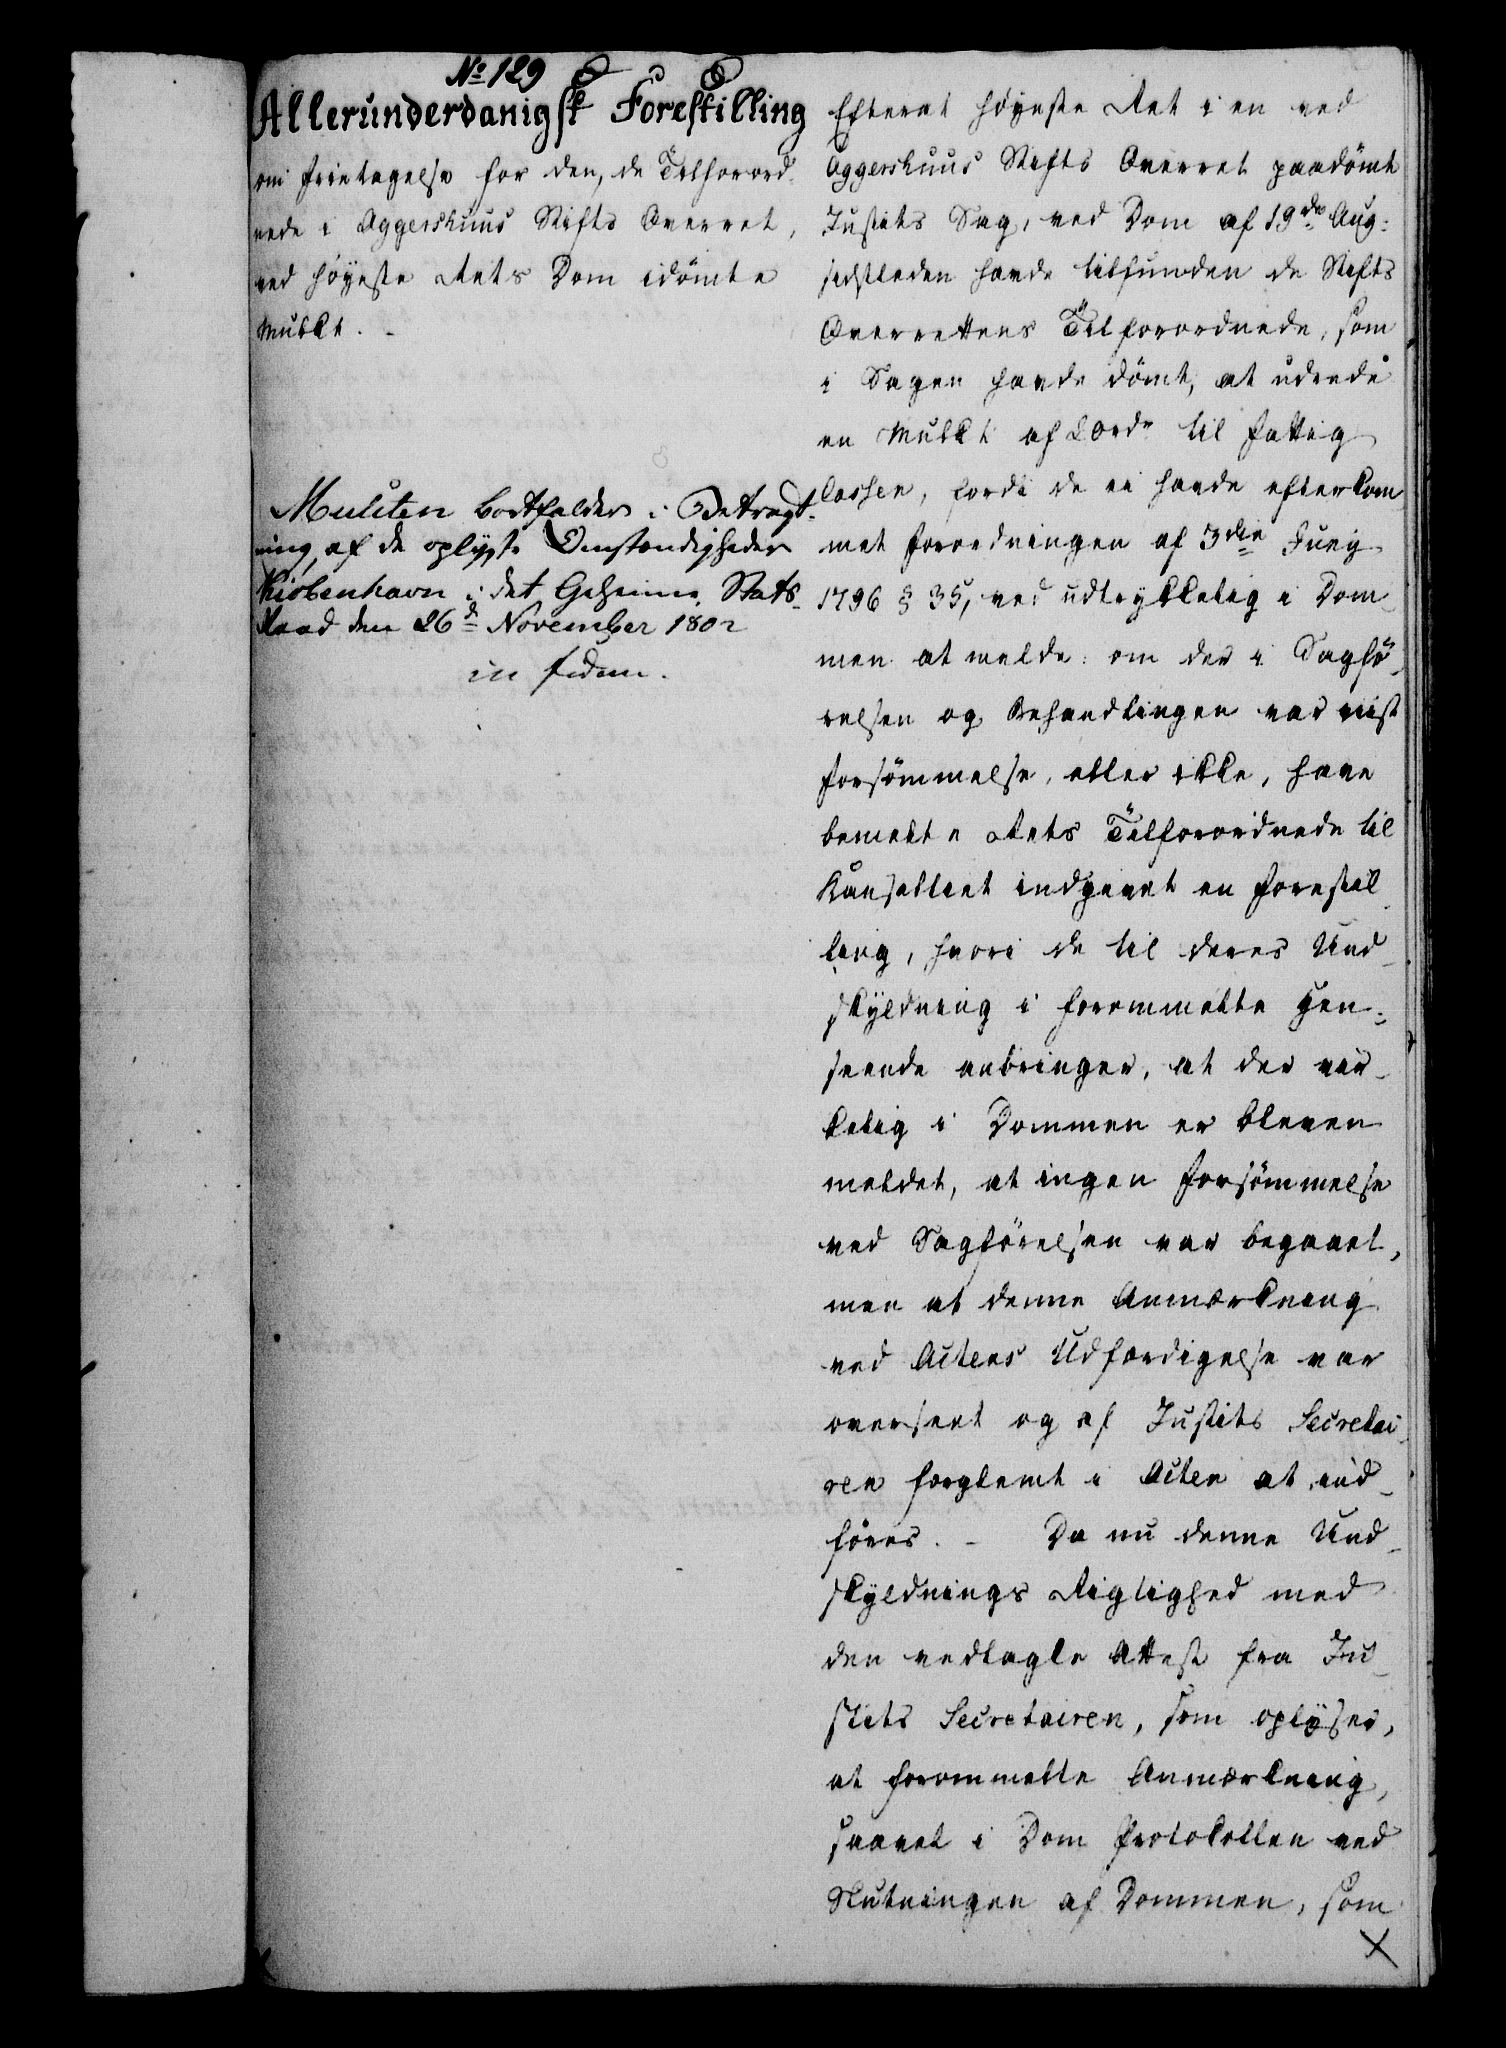 No 129
Allerunderdanigst Forestilling
om fritagelse for den, de Tilforord-
nede i Aggershuus Stifts Overret,
ved Høyeste Rets Dom idømte
Mulkt. -
Mulcten bortfalder i Betragt-
ning af de oplyste Omstændigheder
Kiøbenhavn i det Geheime Stats-
Raad den 26d November 1802
in fidem.
Efterat Høyeste Ret i en ved
Aggershuus Stifts Overret paadømt
Justits Sag, ved Dom af 19de Aug:
sidstleden havde tilfunden de Stifts
Overrettens Tilforordnede, som
i Sagen havde dømt, at udrede
en Mulkt af 20rdr til fattig
Cassen, fordi de ei havde efterkom-
met forordningen af 3die Juny
1796 § 35, ved udtrykkelig i Dom-
men at melde: om der i Sagfø-
relsen og Behandlingen var viist
forsømmelse, eller ikke, have
bemelte Rets Tilforordnede til
Kanselliet indgivet en forestil-
ling, hvori de til deres Und-
skyldning i forommelte Hen-
seende anbringer, at der vir-
kelig i Dommen er bleven
meldet, at ingen forsømmelse
ved Sagførelsen var begaaet,
men at denne Anmærkning
ved Actens Udfærdigelse var
overseet og af Justits Secretai-
ren forglemt i Acten at ind-
føres. - Da nu denne Und-
skyldnings Rigtighed med
den vedlagte Attest fra Ju-
stits Secretairen, som oplyser,
at forommelte Anmærkning,
saavel i Dom Protokollen ved
Slutningen af Dommen, som